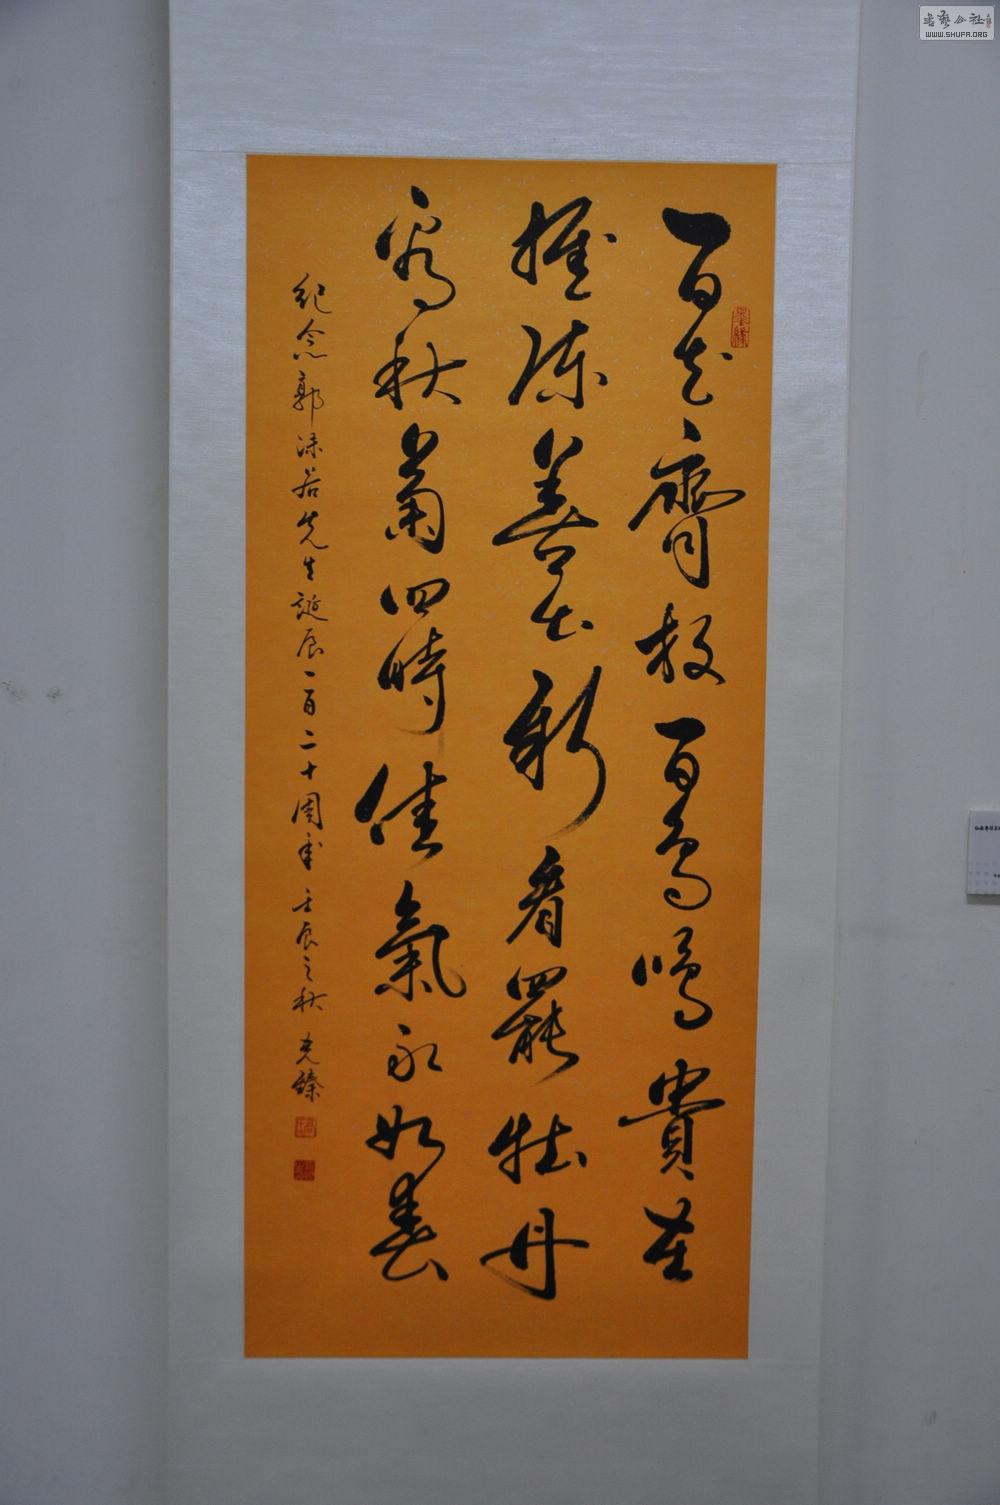 百花齊放百鳥鳴貴在
推陳善出新看罷牡丹
寫秋菊四時佳氣永如春
紀念郭沫若先生誕辰一百二十周年 壬辰之秋 克臻
WWW.SHUFA.ORG